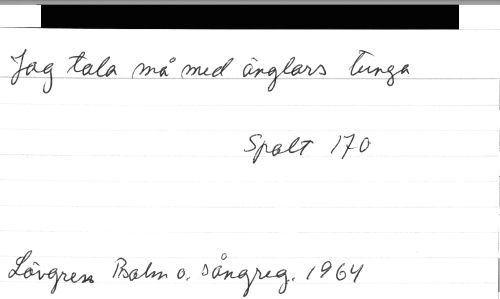 Jag tala må med änglars tunga
Spalt 170
Lövgren Psalm o. sångreg. 1964